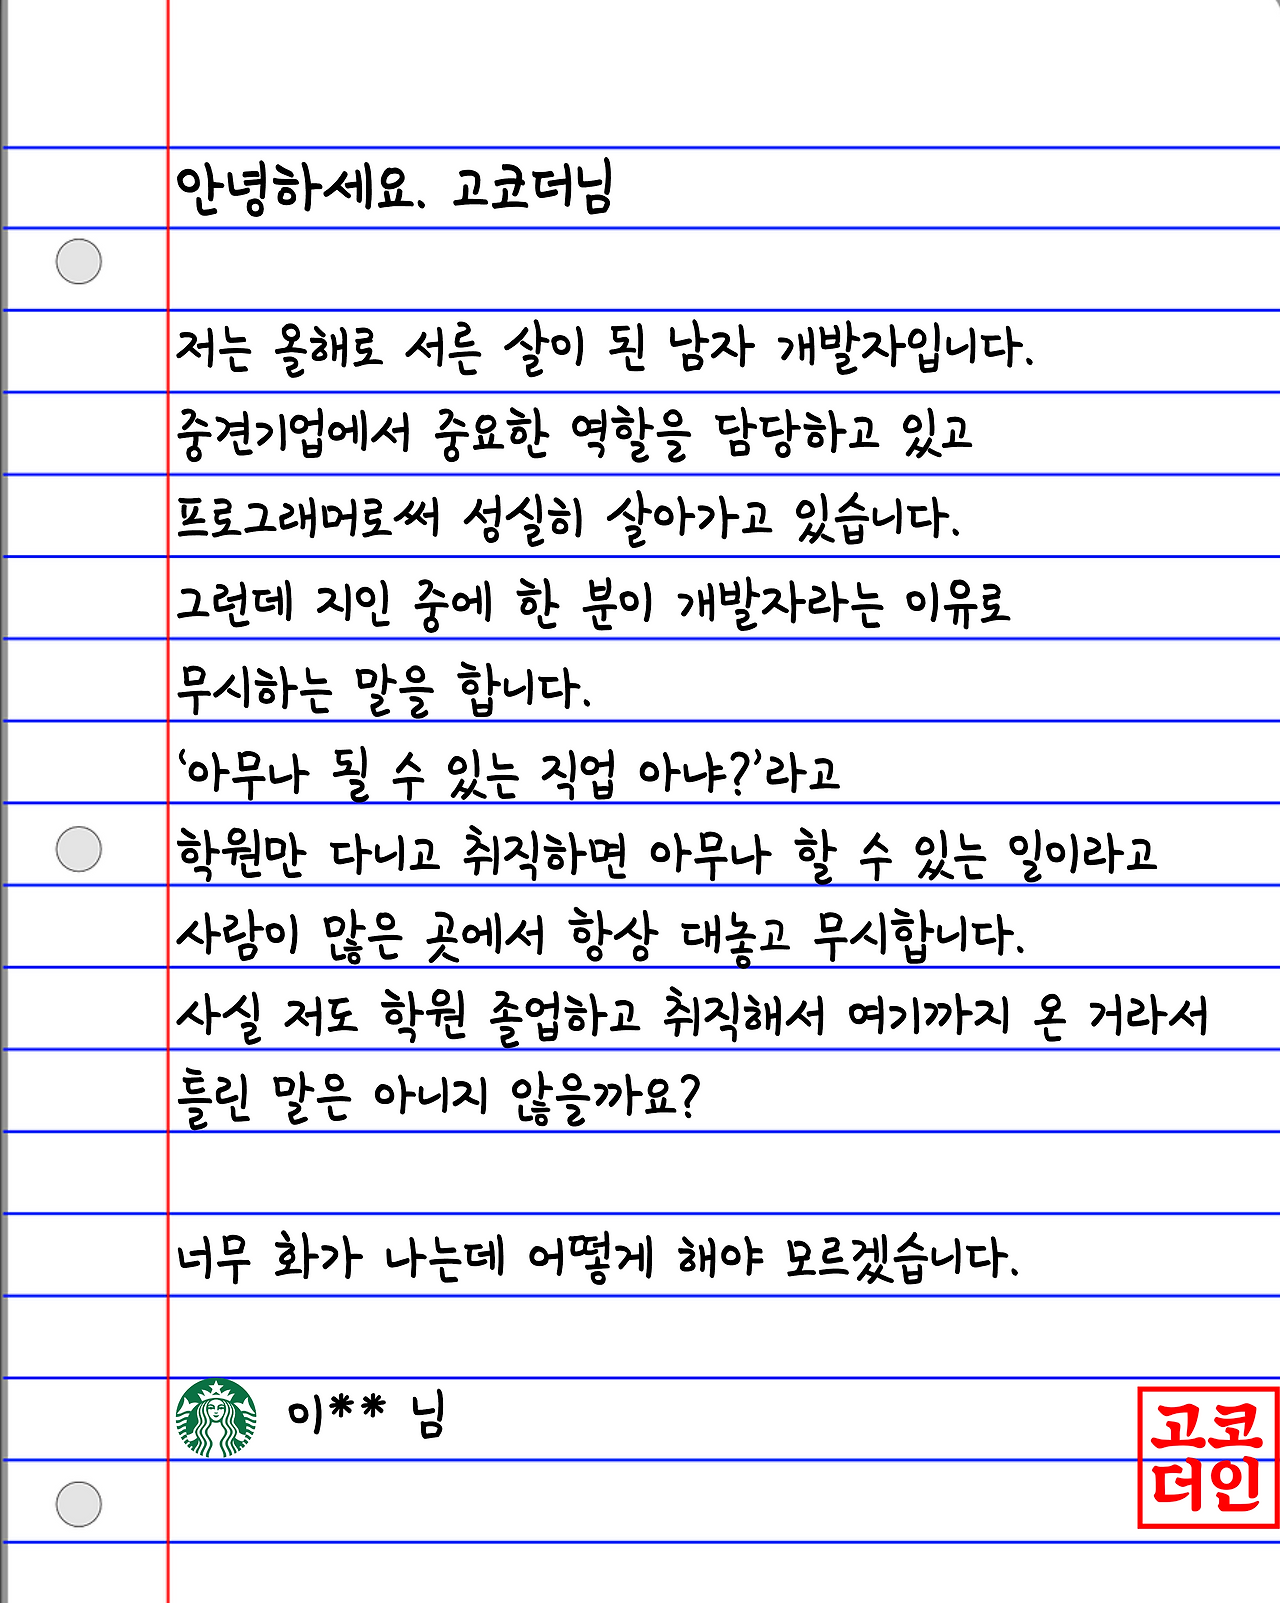 안녕하세요. 고코더님
저는 올해로 서른 살이 된 남자 개발자입니다.
중견기업에서 중요한 역할을 담당하고 있고
프로그래머로써 성실히 살아가고 있습니다.
그런데 지인 중에 한 분이 개발자라는 이유로
무시하는 말을 합니다.
‘아무나 될 수 있는 직업 아냐?’라고
학원만 다니고 취직하면 아무나 할 수 있는 일이라고
사람이 많은 곳에서 항상 대놓고 무시합니다.
사실 저도 학원 졸업하고 취직해서 여기까지 온 거라서
틀린 말은 아니지 않을까요?
너무 화가 나는데 어떻게 해야 모르겠습니다.
이** 님
고코
더인